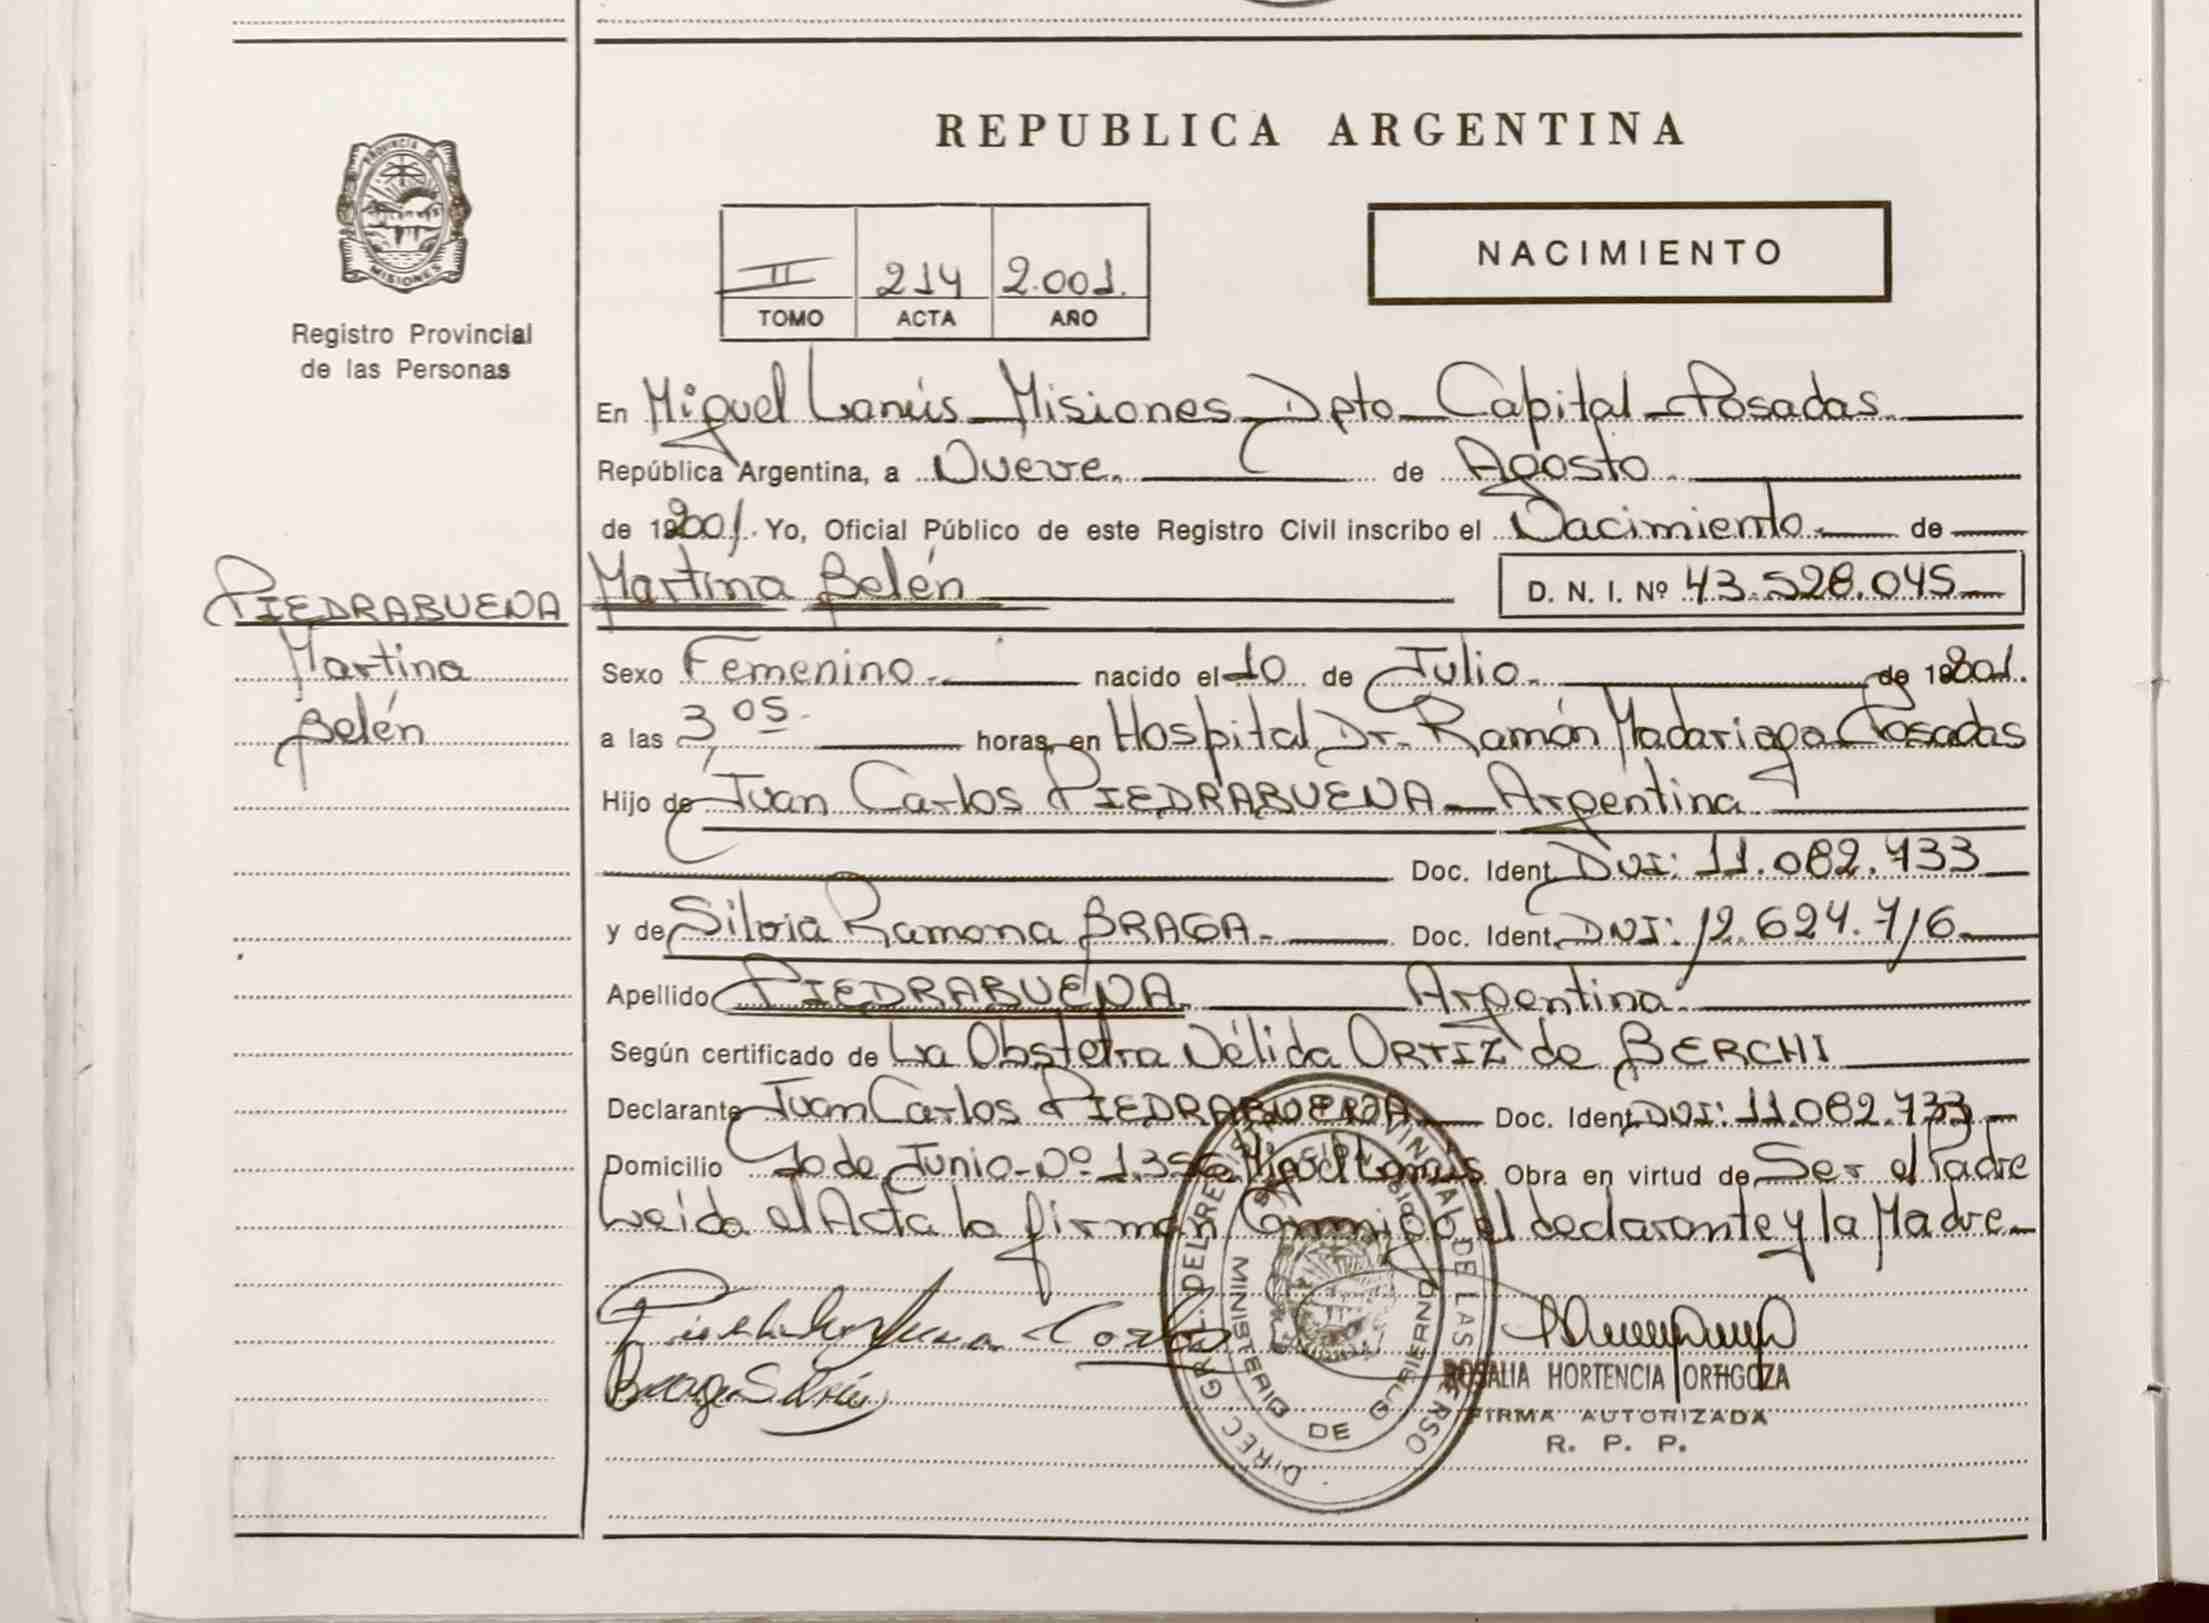 REPUBLICA ARGENTINA
PROVINCIA DE
MISIONES
Registro Provincial
de las Personas
NACIMIENTO
II 214 2.001.
TOMO ACTA AÑO
En Miguel Lanús - Misiones - Dpto - Capital - Posadas
República Argentina, a Nueve. de Agosto.
de 192001. Yo, Oficial Público de este Registro Civil inscribo el Nacimiento - de
PIEDRABUENA
Martina
Belén
Martina Belén D. N. I. Nº 43.528.045
Sexo Femenino. nacido el 10 de Julio. de 192001.
a las 3,05. horas, en Hospital Dr. Ramón Madariaga Posadas
Hijo de Juan Carlos PIEDRABUENA - Argentina
Doc. Ident. DNI: 11.082.733
y de Silvia Ramona BRAGA - Doc. Ident. DNI: 12.624.716
Apellido PIEDRABUENA Argentina.
Según certificado de La Obstetra Nélida ORTIZ de BERCHI
Declarante Juan Carlos PIEDRABUENA Doc. Ident. DNI: 11.082.733
Domicilio 10 de Junio - Nº 1.356 Miguel Lanús Obra en virtud de Ser el Padre
Leida el Acta la firman Conmigo el declarante y la Madre.
DIREC. GRAL. DEL REGISTRO PROVINCIAL DE LAS PERSO
MINISTERIO DE GOBIERNO
Braga Silvia
ROSALIA HORTENCIA ORTIGOZA
FIRMA AUTORIZADA
R. P. P.